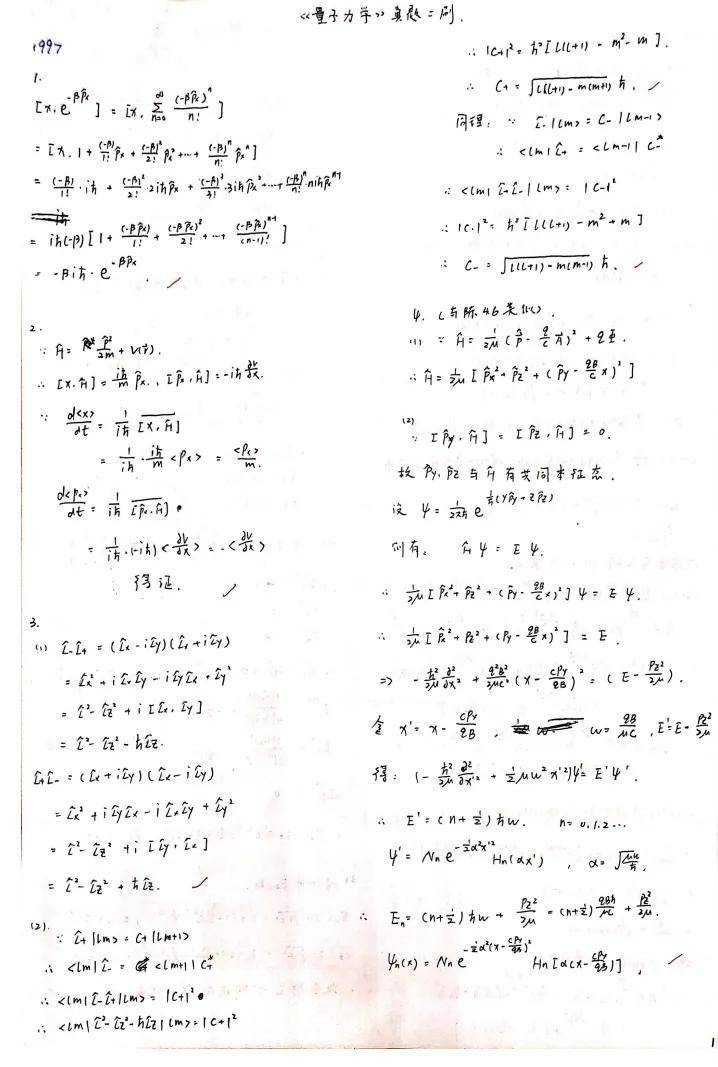 《量子力学》真题二刷.
1997
1.
[x, e^{-βp̂ₓ}] = [x, Σ_{n=0}^{∞} (-βp̂ₓ)ⁿ/n!]
= [x, 1 + (-β)/1! p̂ₓ + (-β)²/2! p̂ₓ² + ... + (-β)ⁿ/n! p̂ₓⁿ]
= (-β)/1! · iħ + (-β)²/2! · 2iħp̂ₓ + (-β)³/3! · 3iħp̂ₓ² + ... + (-β)ⁿ/n! · niħp̂ₓⁿ⁻¹
= iħ(-β)[1 + (-βp̂ₓ)/1! + (-βp̂ₓ)²/2! + ... + (-βp̂ₓ)ⁿ⁻¹/(n-1)!]
= -βiħ · e^{-βp̂ₓ}
2.
∵ Ĥ = p̂²/2m + V(r⃗).
∴ [x, Ĥ] = iħ/m p̂ₓ, [p̂ₓ, Ĥ] = -iħ ∂V/∂x.
∵ d<x>/dt = 1/iħ \overline{[x, Ĥ]}
= 1/iħ · iħ/m <pₓ> = <pₓ>/m.
d<pₓ>/dt = 1/iħ \overline{[p̂ₓ, Ĥ]}
= 1/iħ · (-iħ) <∂V/∂x> = -<∂V/∂x>
得证.
3.
(1) L̂₋L̂₊ = (L̂ₓ - iL̂y)(L̂ₓ + iL̂y)
= L̂ₓ² + iL̂ₓL̂y - iL̂yL̂ₓ + L̂y²
= L̂² - L̂z² + i[L̂ₓ, L̂y]
= L̂² - L̂z² - ħL̂z.
L̂₊L̂₋ = (L̂ₓ + iL̂y)(L̂ₓ - iL̂y)
= L̂ₓ² + iL̂yL̂ₓ - iL̂ₓL̂y + L̂y²
= L̂² - L̂z² + i[L̂y, L̂ₓ]
= L̂² - L̂z² + ħL̂z.
(2).
∵ L̂₊|lm> = C₊|lm+1>
∴ <lm|L̂₋ = <lm+1|C₊*
∴ <lm|L̂₋L̂₊|lm> = |C₊|²
∴ <lm|L̂² - L̂z² - ħL̂z|lm> = |C₊|²
∴ |C₊|² = ħ²[l(l+1) - m² - m].
∴ C₊ = √(l(l+1) - m(m+1)) ħ.
同理: ∵ L̂₋|lm> = C₋|lm-1>
∴ <lm|L̂₊ = <lm-1|C₋*
∴ <lm|L̂₊L̂₋|lm> = |C₋|²
∴ |C₋|² = ħ²[l(l+1) - m² + m]
∴ C₋ = √(l(l+1) - m(m-1)) ħ.
4. (与陈46类似).
(1) ∵ Ĥ = 1/2μ (p̂ - q/c A⃗)² + qΦ.
∴ Ĥ = 1/2μ [p̂ₓ² + p̂z² + (p̂y - qB/c x)²]
(2)
∵ [p̂y, Ĥ] = [p̂z, Ĥ] = 0.
故 p̂y, p̂z 与 Ĥ 有共同本征态.
设 ψ = 1/2πħ e^{i/ħ(yp̂y + zp̂z)}
则有. Ĥψ = Eψ.
∴ 1/2μ [p̂ₓ² + p̂z² + (p̂y - qB/c x)²]ψ = Eψ.
∴ 1/2μ [p̂ₓ² + pz² + (py - qB/c x)²] = E.
⇒ -ħ²/2μ ∂²/∂x² + q²B²/2μc² (x - cpy/qB)² = (E - pz²/2μ).
令 x' = x - cpy/qB, ω = qB/μc, E' = E - pz²/2μ
得: (-ħ²/2μ ∂²/∂x'² + ½μω²x'²)ψ' = E'ψ'.
∴ E' = (n+½)ħω. n=0.1.2...
ψ' = Nₙ e^{-½α²x'²} Hₙ(αx'), α = √(μω/ħ).
∴ Eₙ = (n+½)ħω + pz²/2μ = (n+½) qBħ/μc + pz²/2μ.
ψₙ(x) = Nₙ e^{-½α²(x - cpy/qB)²} Hₙ[α(x - cpy/qB)].
1